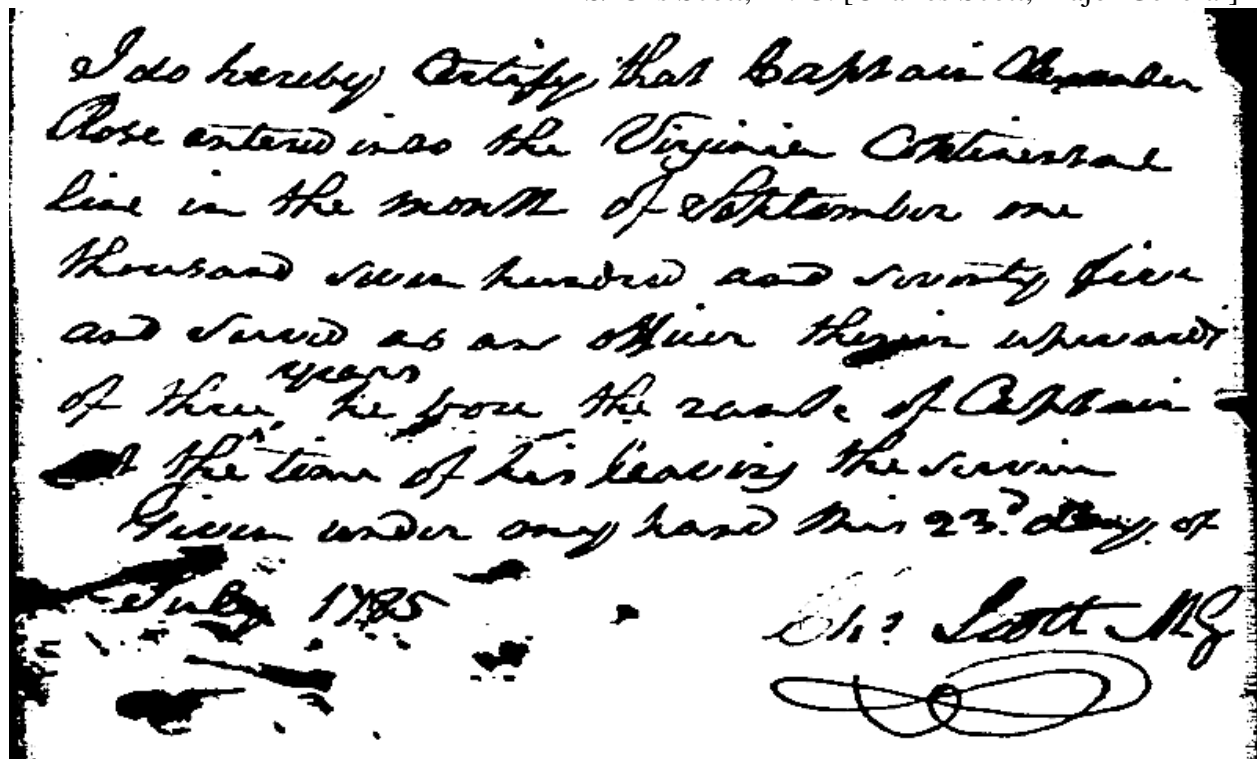 I do hereby Certify that Captain Alexander
Rose entered into the Virginia Continental
line in the month of September one
thousand seven hundred and seventy five
and served as an officer therein upwards
years
of three he bore the rank of Captain
at the time of his leaving the service
Given under my hand this 23.d day of
July 1785
Chs Scott M.G